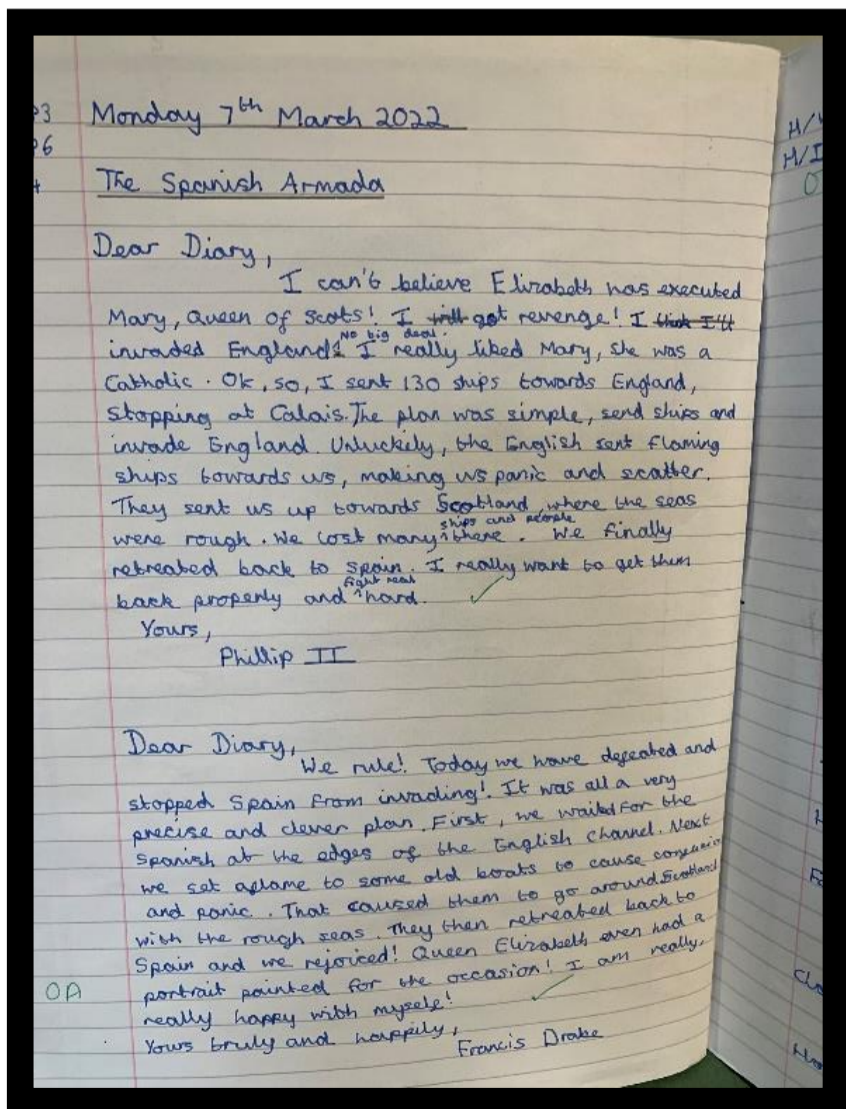 Monday 7th March 2022
The Spanish Armada
Dear Diary,
I can't believe Elizabeth has executed
Mary, Queen of Scots! I will got revenge! I
invaded England! No big deal. I really liked Mary, she was a
Catholic. Ok, so, I sent 130 ships towards England,
stopping at Calais. The plan was simple, send ships and
invade England. Unluckely, the English sent flaming
ships towards us, making us panic and scatter.
They sent us up towards Scotland, where the seas
were rough. We lost many ships and people there. We finally
retreated back to Spain. I really want to get them
back properly and fight real hard.
Yours,
Phillip II
Dear Diary,
We rule! Today we have defeated and
stopped Spain from invading! It was all a very
precise and clever plan. First, we waited for the
Spanish at the edges of the English Channel. Next
we set aflame to some old boats to cause confusion
and panic. That caused them to go around Scotland
with the rough seas. They then retreated back to
Spain and we rejoiced! Queen Elizabeth even had a
portrait painted for the occasion! I am really,
OA
really happy with myself!
Yours truly and happily,
Francis Drake